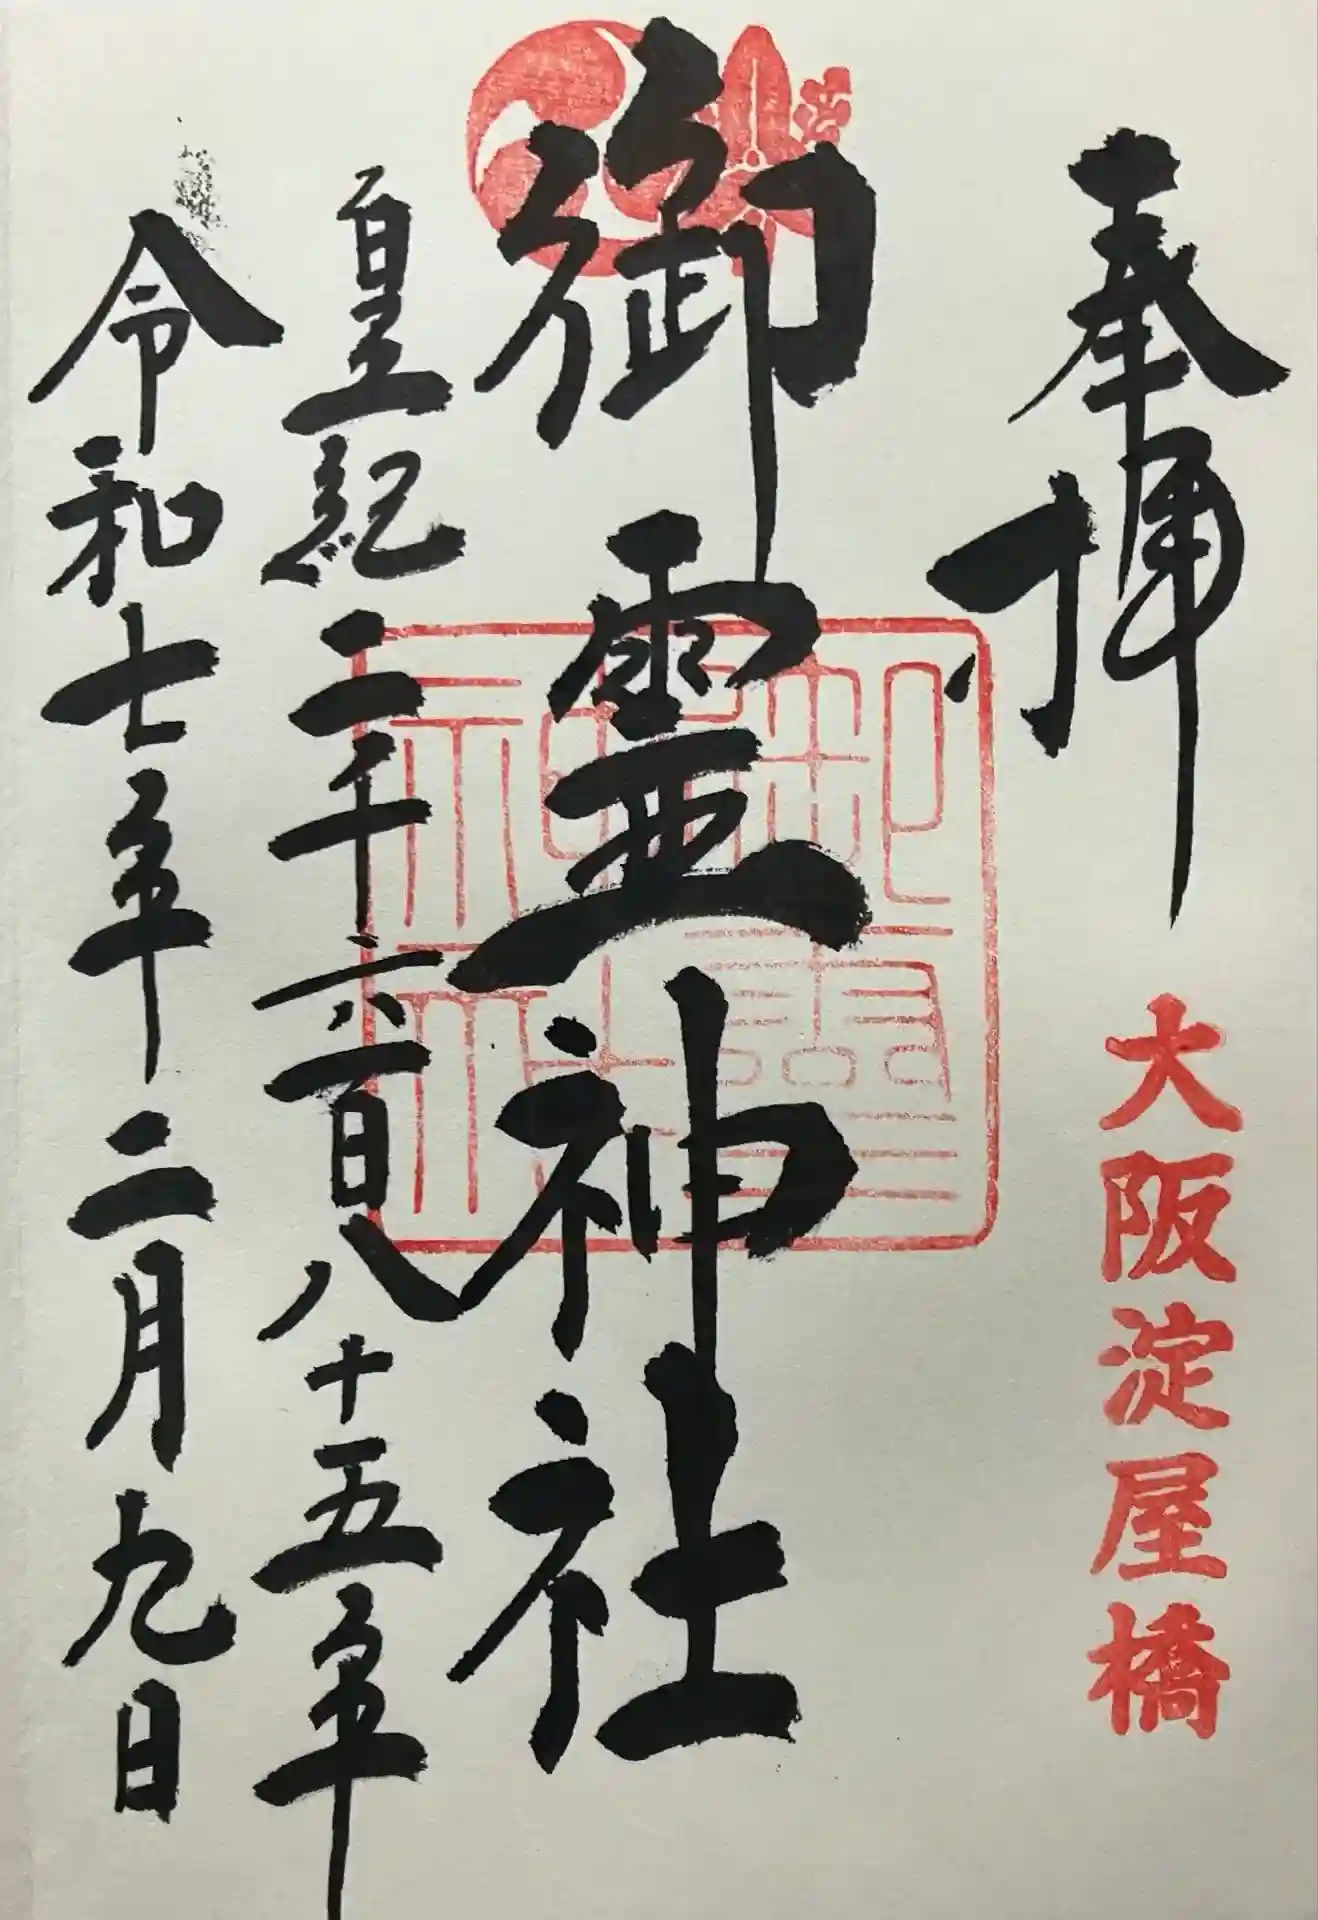 奉拝
大阪淀屋橋
御霊神社
御霊神社
皇紀二千六百八十五年
令和七年二月九日